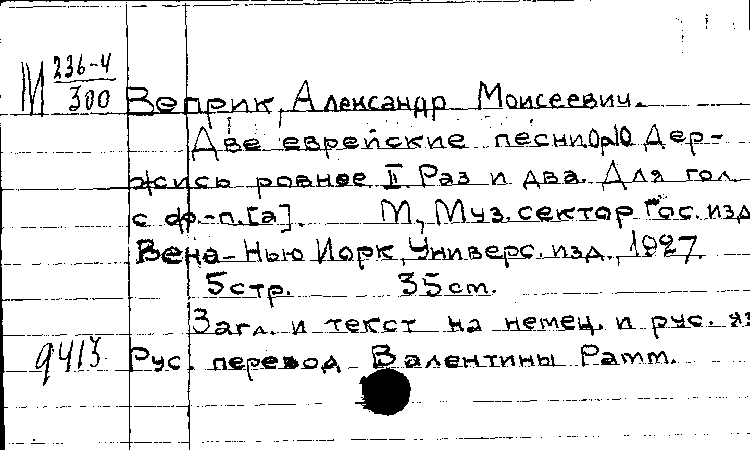 М 236-4/300 Веприк, Александр Моисеевич.
Две еврейские песни ор10 Дер-
жись ровнее II Раз и два. Для гол.
с фр.-п.[а]. М., Муз. сектор Гос. изд
Вена - Нью Иорк, Универс. изд., 1927.
5стр. 35cm.
Загл. и текст на немец. и рус. яз
9413 Рус. перевод Валентины Рамм.